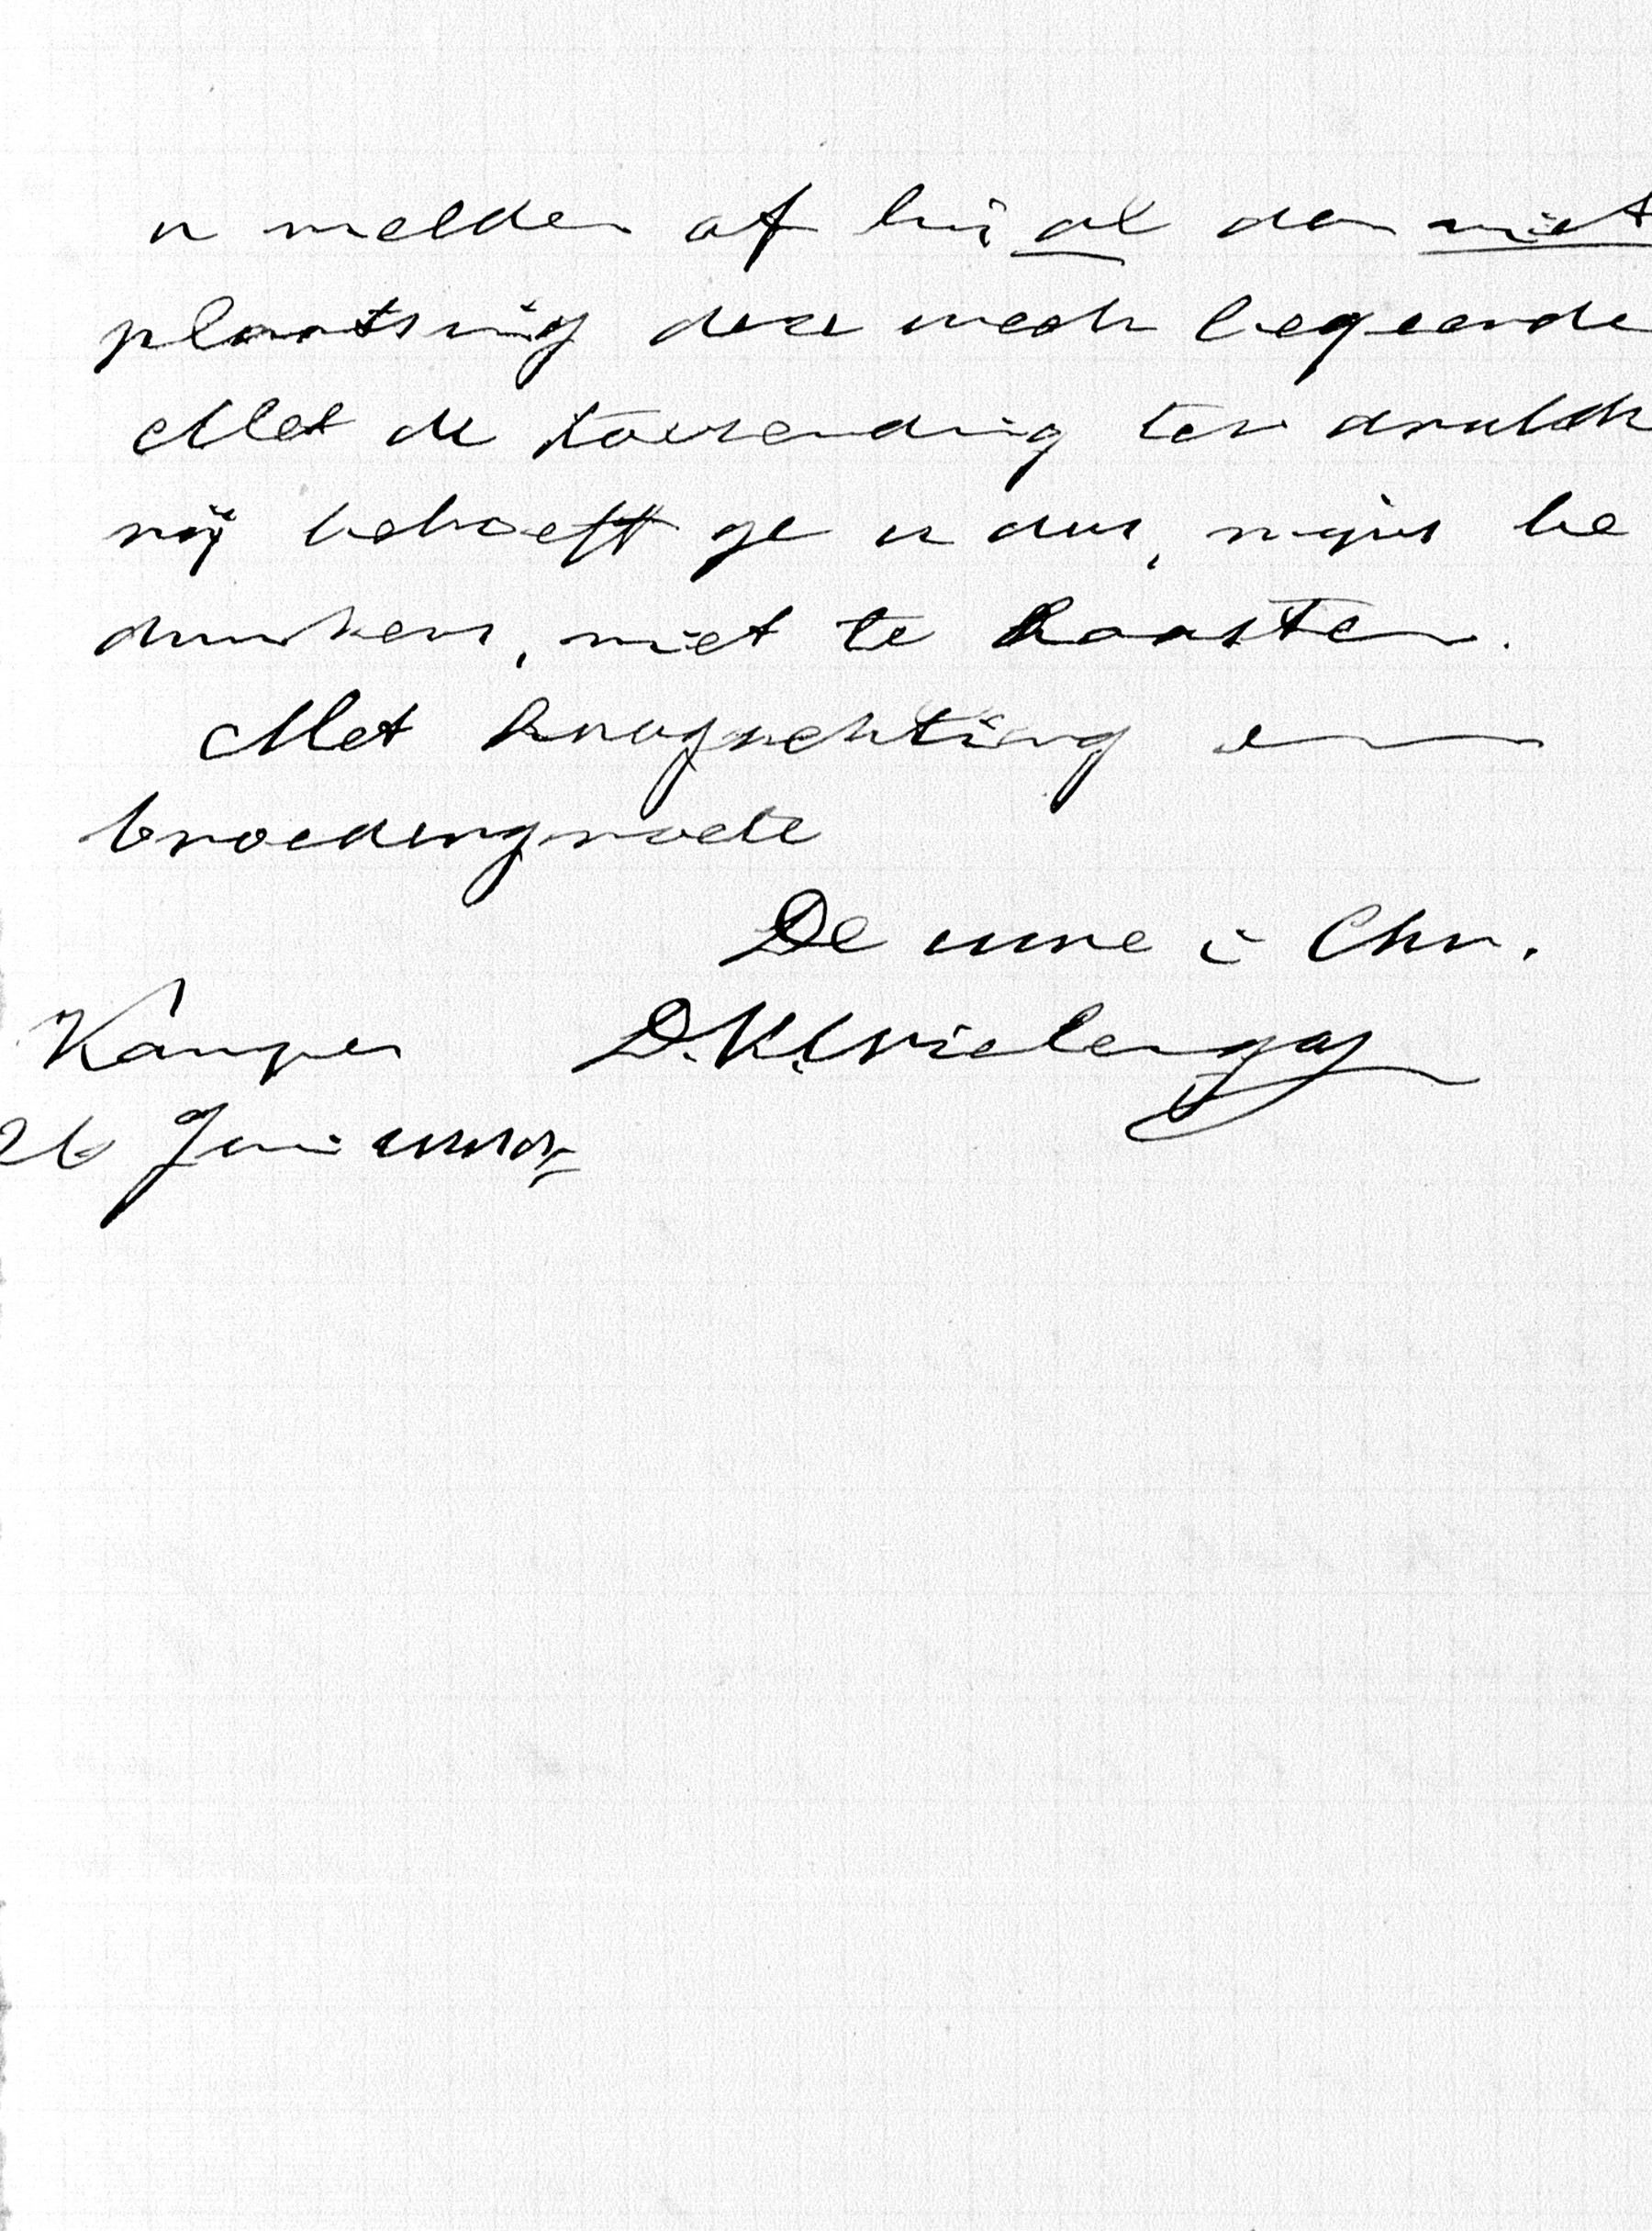 u melden of hij al dan niet
plaatsing deze week begeerde
Met de toezending ter drukke
rij behoeft ge u dus, mijns be
dunkens, niet te haasten.
Met hoogachting en
broedergroete
De uwe i Chr.
Kampen D.K. Wielenga
26 Juni